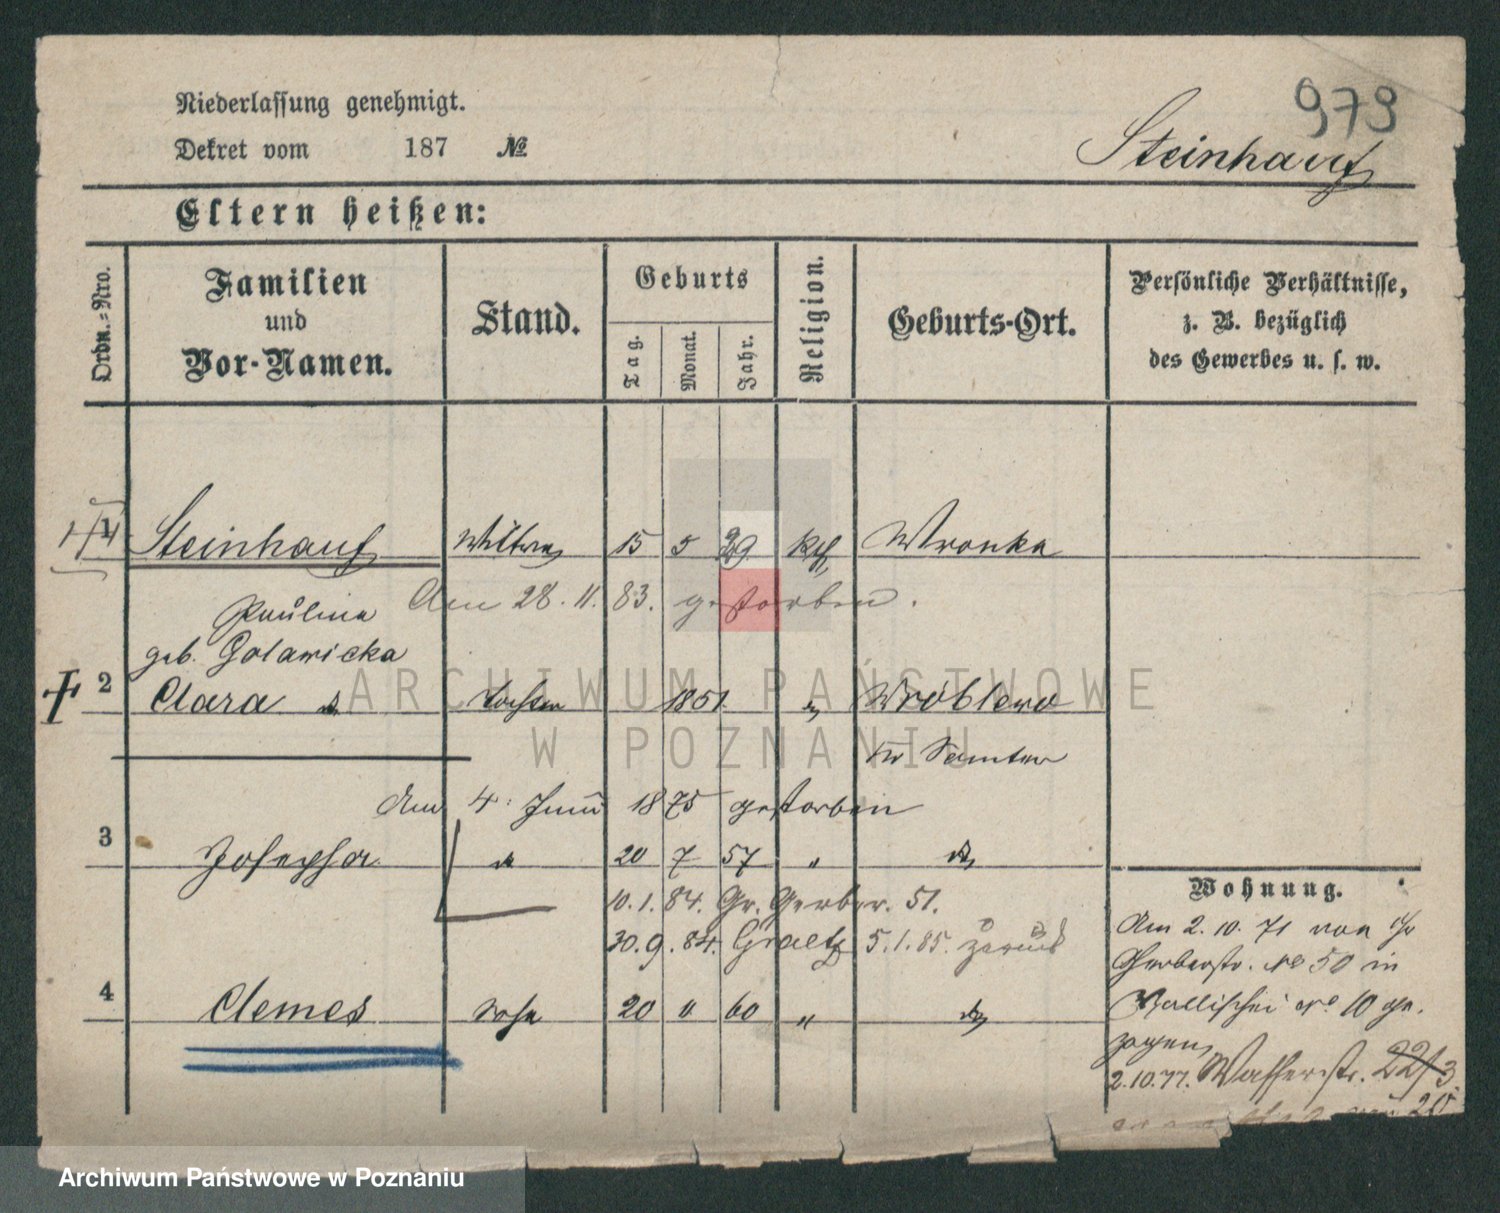 979
Niederlassung genehmigt.
Dekret vom 187 №
Steinhauf
Eltern heißen:
Ordn.-Nro.
Familien und Vor-Namen.
Stand.
Geburts
Tag.
Monat.
Jahr.
Religion.
Geburts-Ort.
Persönliche Verhältnisse,
z. B. bezüglich
des Gewerbes u. s. w.
1 Steinhauf Wittwe 15 5 29 kth Wronke
Am 28. 11. 83. gestorben.
Paulina
geb. Golawicka
2 Clara Tochter 1851 " Wróblewo
Kr Samter
Am 4. Juni 1875 gestorben
3 Josepha 20 7 57 "
10. 1. 84. Gr. Gerber. 51.
30. 9. 84. Graetz 5. 1. 85. zurück
4 Clemes Sohn 20 " 60 "
Wohnung.
Am 2. 10. 71 von Gr
Gerberstr. No 50 in
Wallischei No 10 ge-
zogen
2. 10. 77. Wasserstr. 22/3
ARCHIWUM PAŃSTWOWE
W POZNANIU
Archiwum Państwowe w Poznaniu